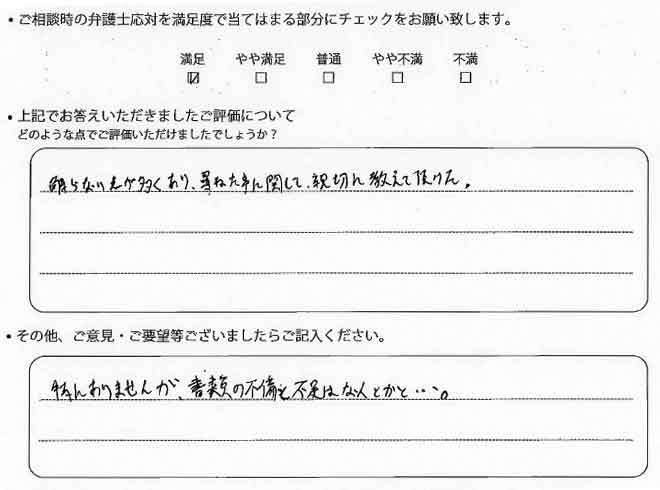 ・ご相談時の弁護士応対を満足度で当てはまる部分にチェックをお願い致します。
満足 やや満足 普通 やや不満 不満
☑ □ □ □ □
・上記でお答えいただきましたご評価について
どのような点でご評価いただけましたでしょうか？
解らない点が多くあり、尋ねた事に関して、親切に教えて頂けた。
・その他、ご意見・ご要望等ございましたらご記入ください。
特にありませんが、書類の不備と不足は何とかと・・・。